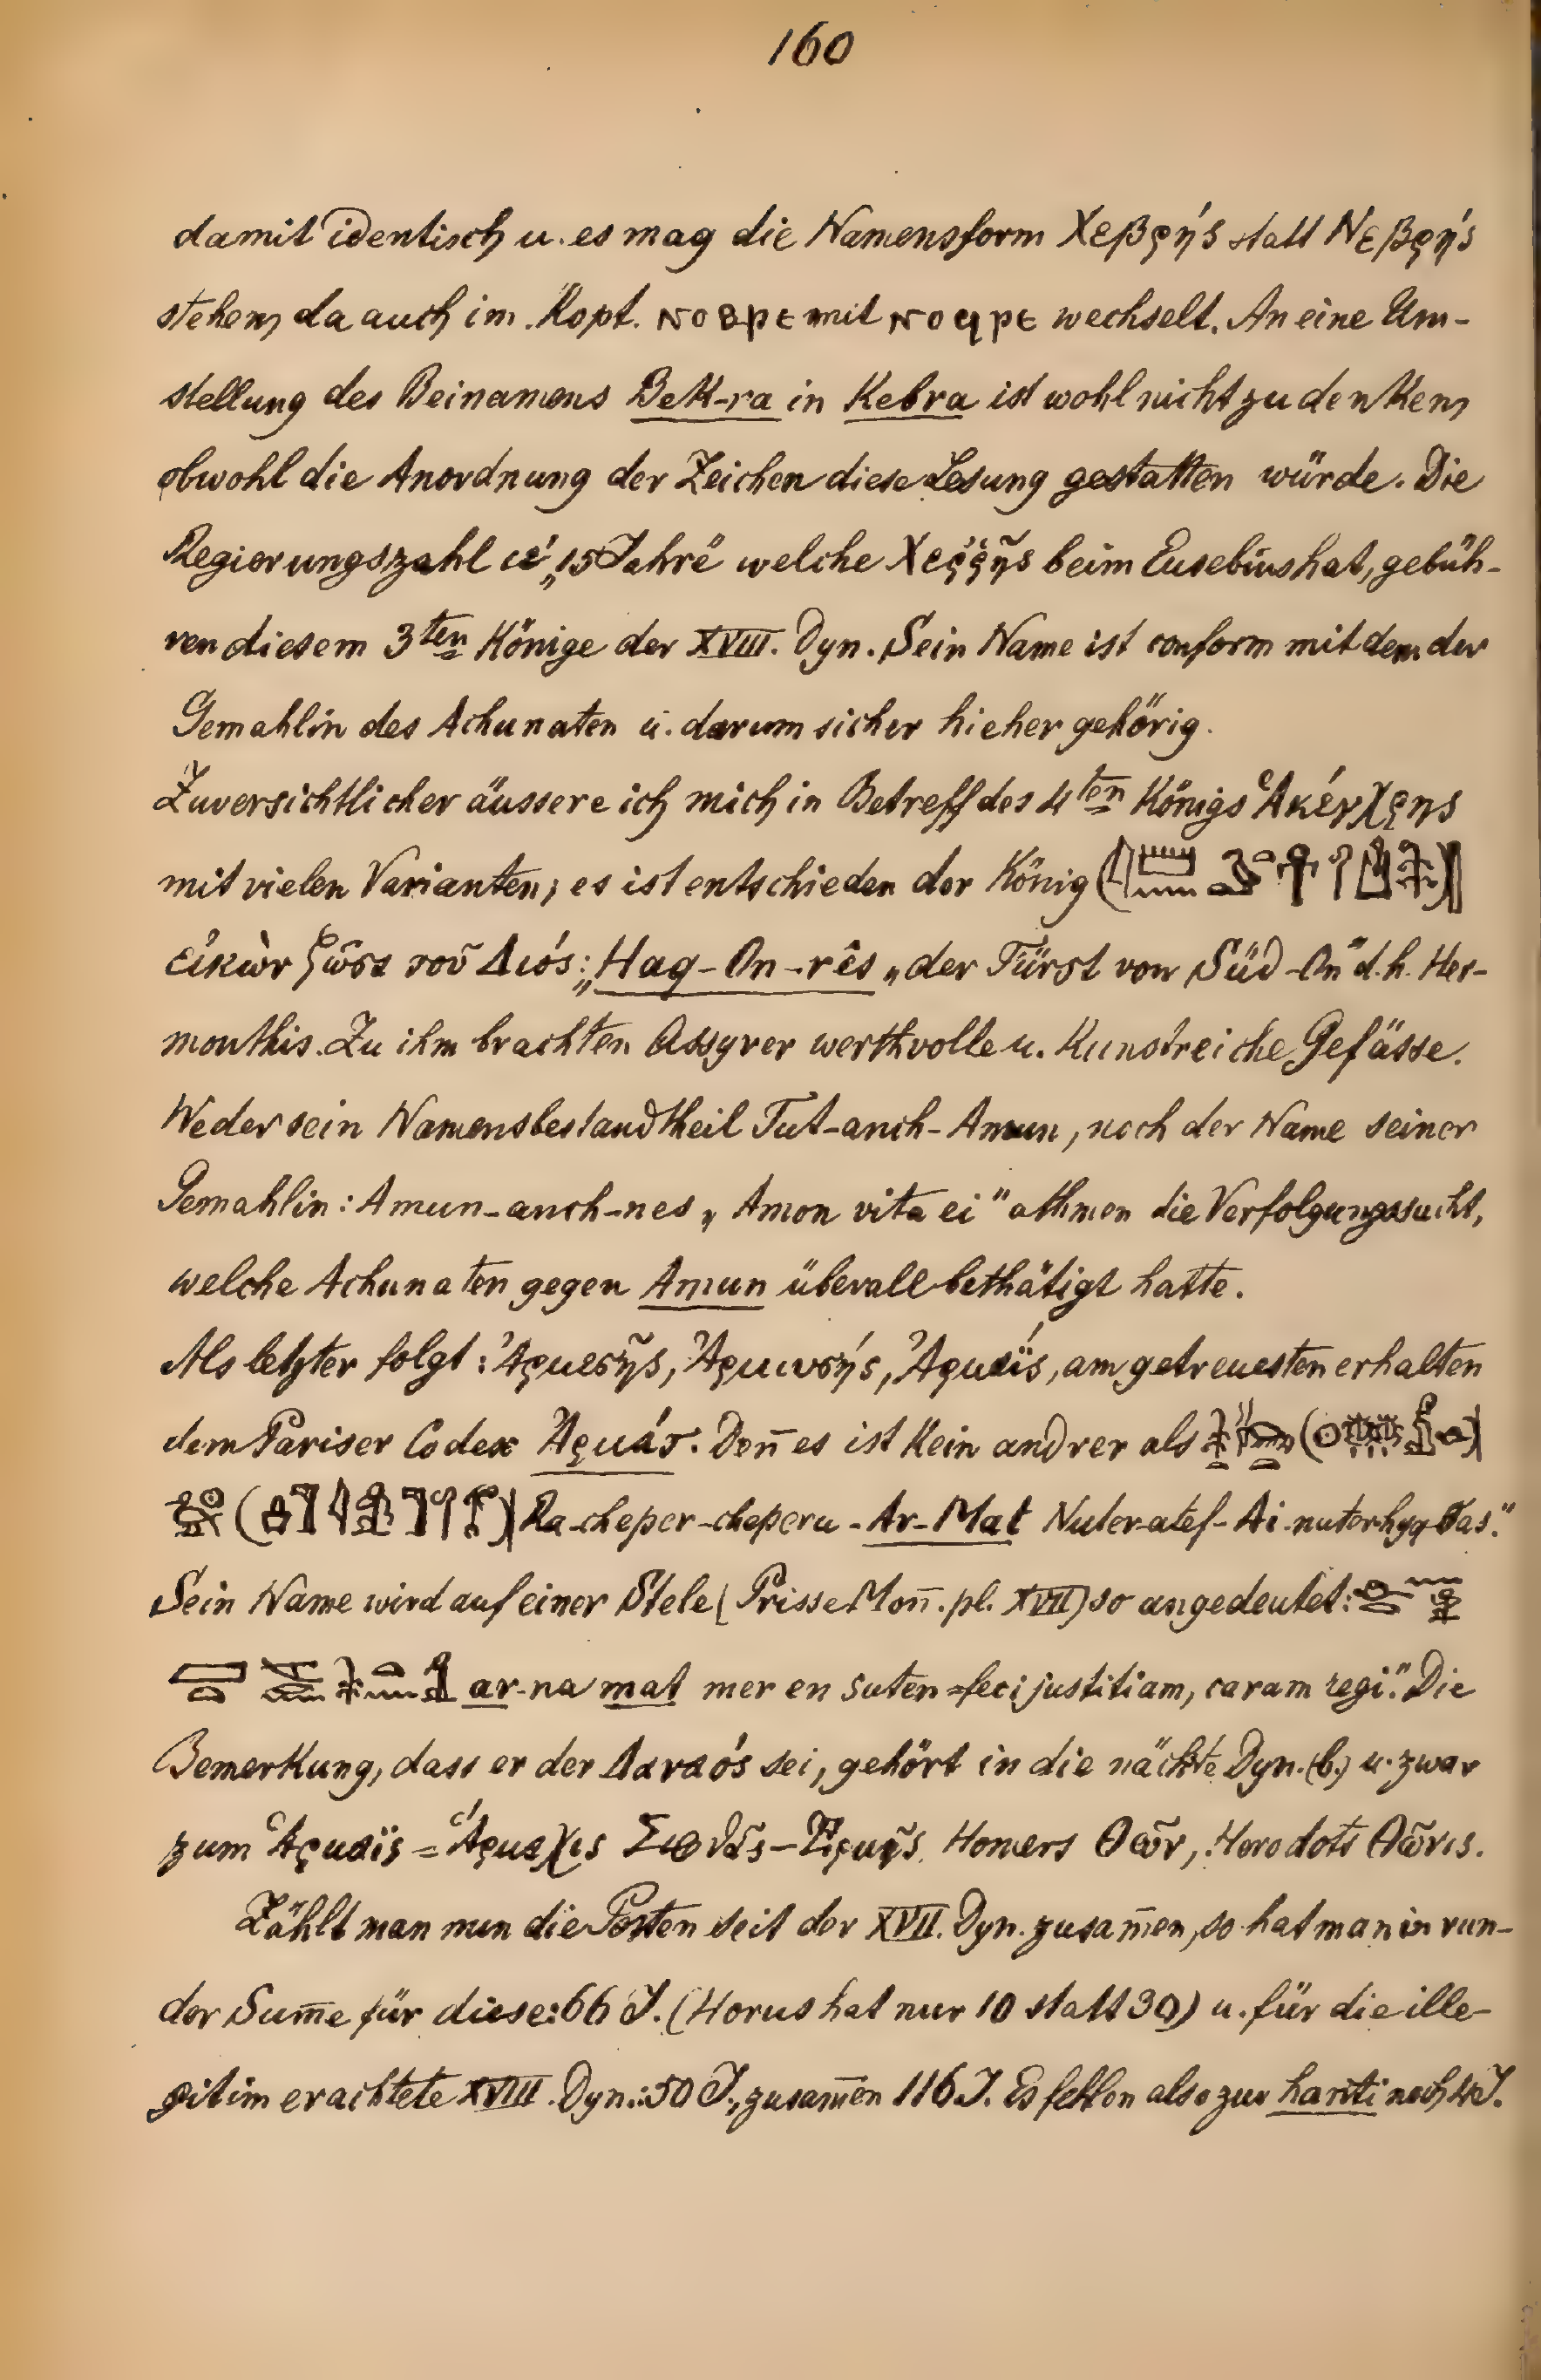 160
damit identisch u. es mag die Namensform Χεβρής statt Νεβρής
stehen, da auch im Kopt. ⲛⲟⲃⲣⲉ mit ⲛⲟϥⲣⲉ wechselt. An eine Um-
stellung des Beinamens Bek-ra in Kebra ist wohl nicht zu denken,
obwohl die Anordnung der Zeichen diese Lesung gestatten würde. Die
Regierungszahl ιε΄ „15 Jahre“ welche Χερρῆς beim Eusebius hat, gebüh-
ren diesem 3ten Könige der XVIII. Dyn. Sein Name ist conform mit dem der
Gemahlin des Achunaten u. darum sicher hieher gehörig.
Zuversichtlicher äussere ich mich in Betreff des 4ten Königs Ἀκέγχρης
mit vielen Varianten; es ist entschieden der König
εἰκὼν ζῶσα τοῦ Διός: „Haq-On-rês „der Fürst von Süd-On“ d. h. Her-
monthis. Zu ihm brachten Assyrer werthvolle u. kunstreiche Gefässe.
Weder sein Namensbestandtheil Tut-anch-Amun, noch der Name seiner
Gemahlin: Amun-anch-nes „Amon vita ei“ athmen die Verfolgungssucht,
welche Achunaten gegen Amun überall bethätigt hatte.
Als letzter folgt: Ἀρμεσῆς, Ἀρμινσής, Ἀρμαΐς, am getreuesten erhalten
dem Pariser Codex Ἀρμάτ. Den̄ es ist kein andrer als
Ra-cheper-cheperu-Ar-Mat Nuter-atef-Ai-nuterhyq-Uas.“
Sein Name wird auf einer Stele (Prisse Mon̄. pl. XVII) so angedeutet:
ar-na mat mer en suten = feci justitiam, caram regi“. Die
Bemerkung, dass er der Δαναός sei, gehört in die nächste Dyn. (b.) u. zwar
zum Ἁρμαΐς = Homers Θῶν, Herodots Θῶνις.
Zählt man nun die Posten seit der XVII. Dyn. zusam̄en, so hat man in run-
der Sum̄e für diese: 66 J. (Horus hat nur 10 statt 30) u. für die ille-
gitim erachtete XVIII. Dyn.: 50 J., zusam̄en 116 J. Es fehlen also zur hanti noch 4 J.